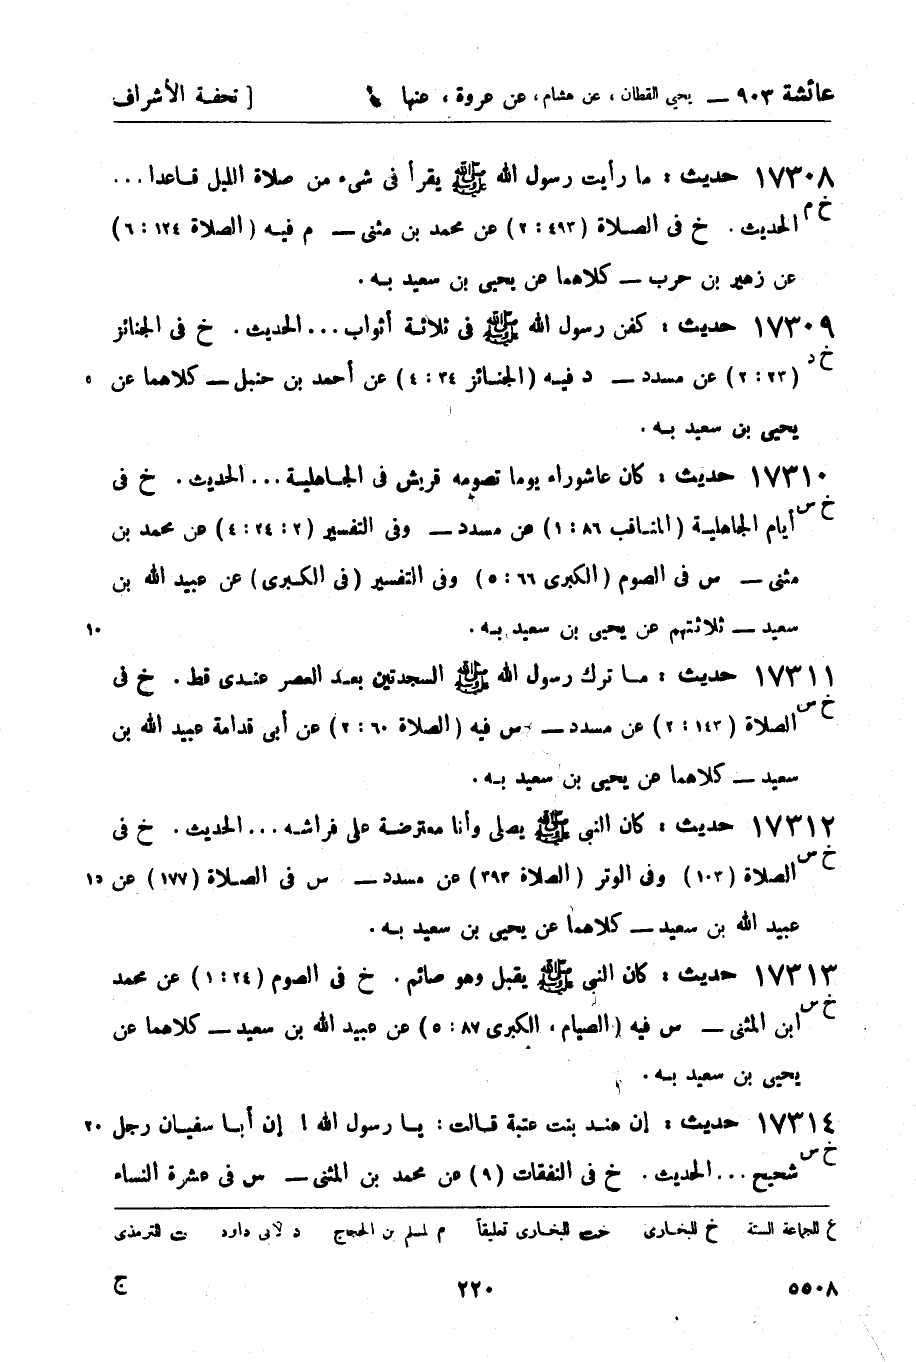 عائشة ٩٠٣ — يحيى القطان، عن هشام، عن عروة، عنها [ تحفة الأشراف
١٧٣٠٨ حديث : ما رأيت رسول الله ﷺ يقرأ فى شىء من صلاة الليل قاعدا...
خ م الحديث. خ فى الصلاة (٤٩٣ : ٢) عن محمد بن مثنى — م فيه (الصلاة ١٢٤ : ٦)
عن زهير بن حرب — كلاهما عن يحيى بن سعيد به.
١٧٣٠٩ حديث : كفن رسول الله ﷺ فى ثلاثة أثواب... الحديث. خ فى الجنائز
خ د (٢٣ : ٢) عن مسدد — د فيه (الجنائز ٣٤ : ٤) عن أحمد بن حنبل — كلاهما عن ٥
يحيى بن سعيد به.
١٧٣١٠ حديث : كان عاشوراء يوما تصومه قريش فى الجاهلية... الحديث. خ فى
خ س أيام الجاهلية (المناقب ٨٦ : ١) عن مسدد — وفى التفسير (٢ : ٢٤ : ٤) عن محمد بن
مثنى — س فى الصوم (الكبرى ٦٦ : ٥) وفى التفسير (فى الكبرى) عن عبيد الله بن
سعيد — ثلاثتهم عن يحيى بن سعيد به. ١٠
١٧٣١١ حديث : ما ترك رسول الله ﷺ السجدتين بعد العصر عندى قط. خ فى
خ س الصلاة (١٤٣ : ٢) عن مسدد — س فيه (الصلاة ٦٠ : ٢) عن أبى قدامة عبيد الله بن
سعيد — كلاهما عن يحيى بن سعيد به.
١٧٣١٢ حديث : كان النبى ﷺ يصلى وأنا معترضة على فراشه... الحديث. خ فى
خ س الصلاة (١٠٣) وفى الوتر (الصلاة ٣٩٣) عن مسدد — س فى الصلاة (١٧٧) عن ١٥
عبيد الله بن سعيد — كلاهما عن يحيى بن سعيد به.
١٧٣١٣ حديث : كان النبى ﷺ يقبل وهو صائم. خ فى الصوم (٢٤ : ١) عن محمد
خ س ابن المثنى — س فيه (الصيام، الكبرى ٨٧ : ٥) عن عبيد الله بن سعيد — كلاهما عن
يحيى بن سعيد به.
١٧٣١٤ حديث : إن هند بنت عتبة قالت : يا رسول الله ! إن أبا سفيان رجل ٢٠
خ س شحيح... الحديث. خ فى النفقات (٩) عن محمد بن المثنى — س فى عشرة النساء
ع للجماعة الستة خ للبخارى خت للبخارى تعليقاً م لمسلم بن الحجاج د لأبى داود ت للترمذى
٥٥٠٨ ٢٢٠ ج